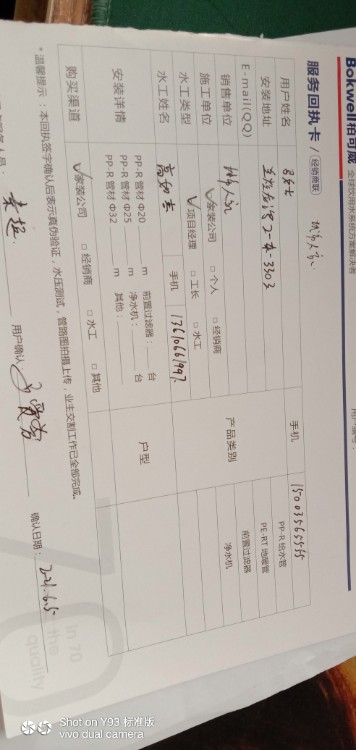 Bokwell柏可威 全球饮用水系统方案解决者
服务回执卡 / 经销商联
用户姓名 手机 15003565555
安装地址 2-4-3303
E-mail(QQ)
销售单位
施工单位 家装公司 □个人 □经销商
水工类型 项目经理 □工长 □水工
水工姓名 手机 13610661997
产品类别 PP-R 给水管
PE-RT 地暖管
前置过滤器
净水机
安装详情 PP-R 管材 Φ20 m 前置过滤器: 台
PP-R 管材 Φ25 m 净水机: 台
PP-R 管材 Φ32 m 其他:
户型
购买渠道 家装公司 □经销商 □水工 □其他
*温馨提示:本回执签字确认后表示真伪验证,水压测试,管路图拍摄上传,业主交割工作已全部完成。
用户确认 确认日期: 2021.6.5
In 70
the
quality
Shot on Y93 标准版
vivo dual camera